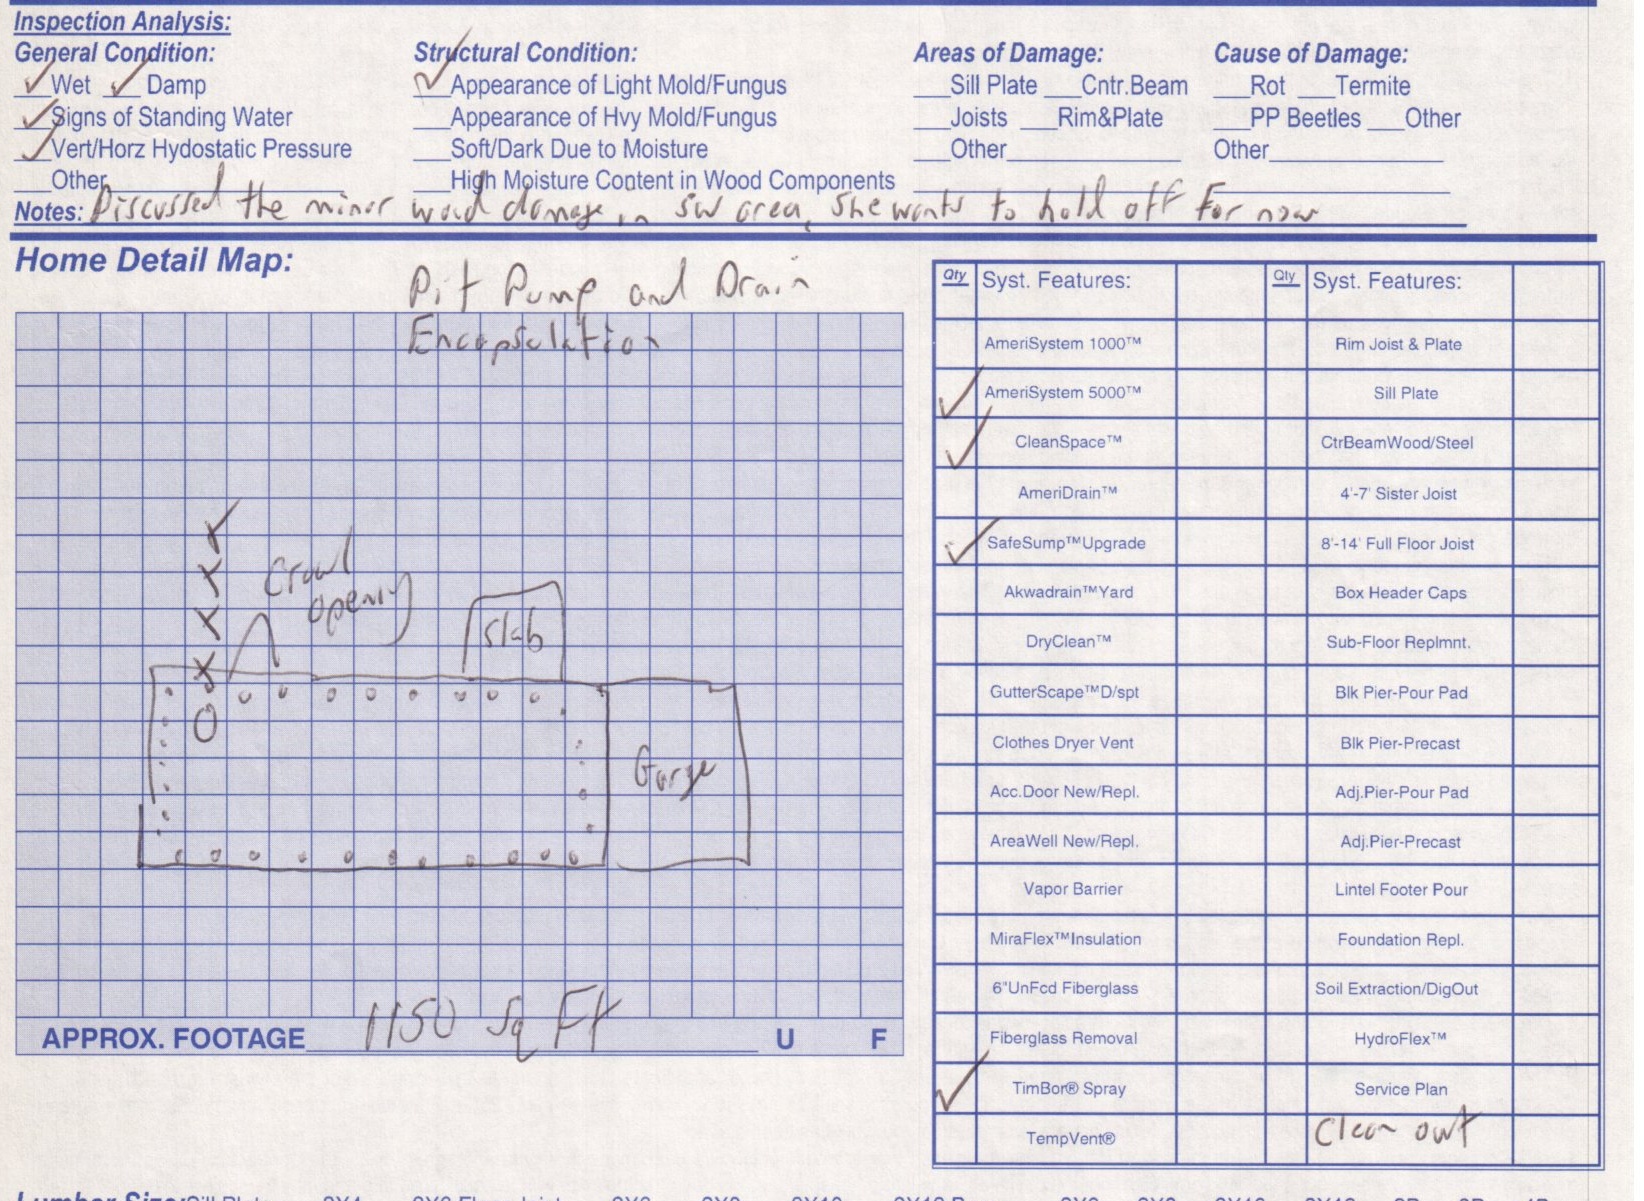 Inspection Analysis:
General Condition: Structural Condition: Areas of Damage: Cause of Damage:
✓ Wet ✓ Damp ✓ Appearance of Light Mold/Fungus ___Sill Plate ___Cntr.Beam ___Rot ___Termite
✓ Signs of Standing Water ___Appearance of Hvy Mold/Fungus ___Joists ___Rim&Plate ___PP Beetles ___Other
✓ Vert/Horz Hydostatic Pressure ___Soft/Dark Due to Moisture ___Other___ Other___
___Other___ ___High Moisture Content in Wood Components
Notes: Discussed the minor wood damage in SW area, She wants to hold off For now
Home Detail Map:
Pit Pump and Drain
Encapsulation
Crawl
opening
Slab
Garge
APPROX. FOOTAGE 1150 Sq Ft U F
Qty Syst. Features: Qty Syst. Features:
AmeriSystem 1000™ Rim Joist & Plate
✓ AmeriSystem 5000™ Sill Plate
✓ CleanSpace™ CtrBeamWood/Steel
AmeriDrain™ 4'-7' Sister Joist
✓ SafeSump™Upgrade 8'-14' Full Floor Joist
Akwadrain™Yard Box Header Caps
DryClean™ Sub-Floor Replmnt.
GutterScape™D/spt Blk Pier-Pour Pad
Clothes Dryer Vent Blk Pier-Precast
Acc.Door New/Repl. Adj.Pier-Pour Pad
AreaWell New/Repl. Adj.Pier-Precast
Vapor Barrier Lintel Footer Pour
MiraFlex™Insulation Foundation Repl.
6"UnFcd Fiberglass Soil Extraction/DigOut
Fiberglass Removal HydroFlex™
✓ TimBor® Spray Service Plan
TempVent® Clean out
Lumber Size: Sill Plate